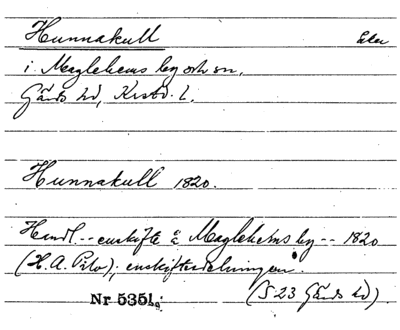 Hunnakull
i Maglehems by och sn,
Gärds hd, Krstd. l.
Hunnakull 1820.
Handl. -- enskifte å Maglehems by -- 1820
(H. A. Pilo); enskiftesdelningen.
Nr 5351. (S 23 Gärds hd).